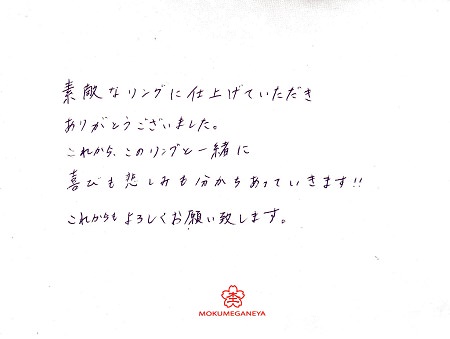 素敵なリングに仕上げていただき
ありがとうございました。
これから、このリングと一緒に
喜びも悲しみも分かちあっていきます!!
これからもよろしくお願い致します。
MOKUMEGANEYA